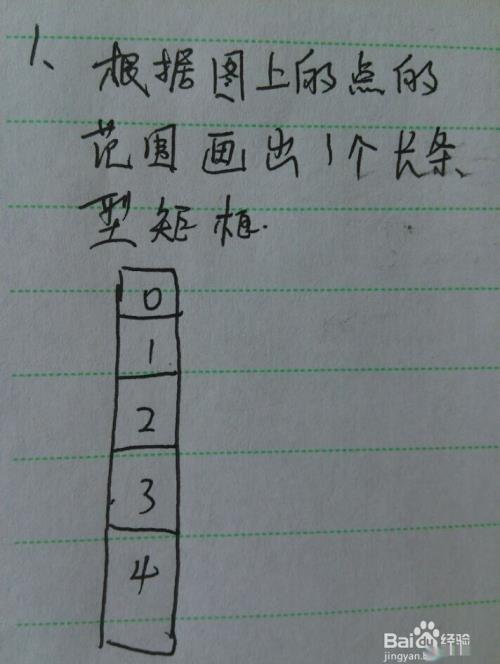 1、根据图上的点的
范围画出1个长条
型矩框.
0
1
2
3
4
Baidu经验
jingyan.baidu.com